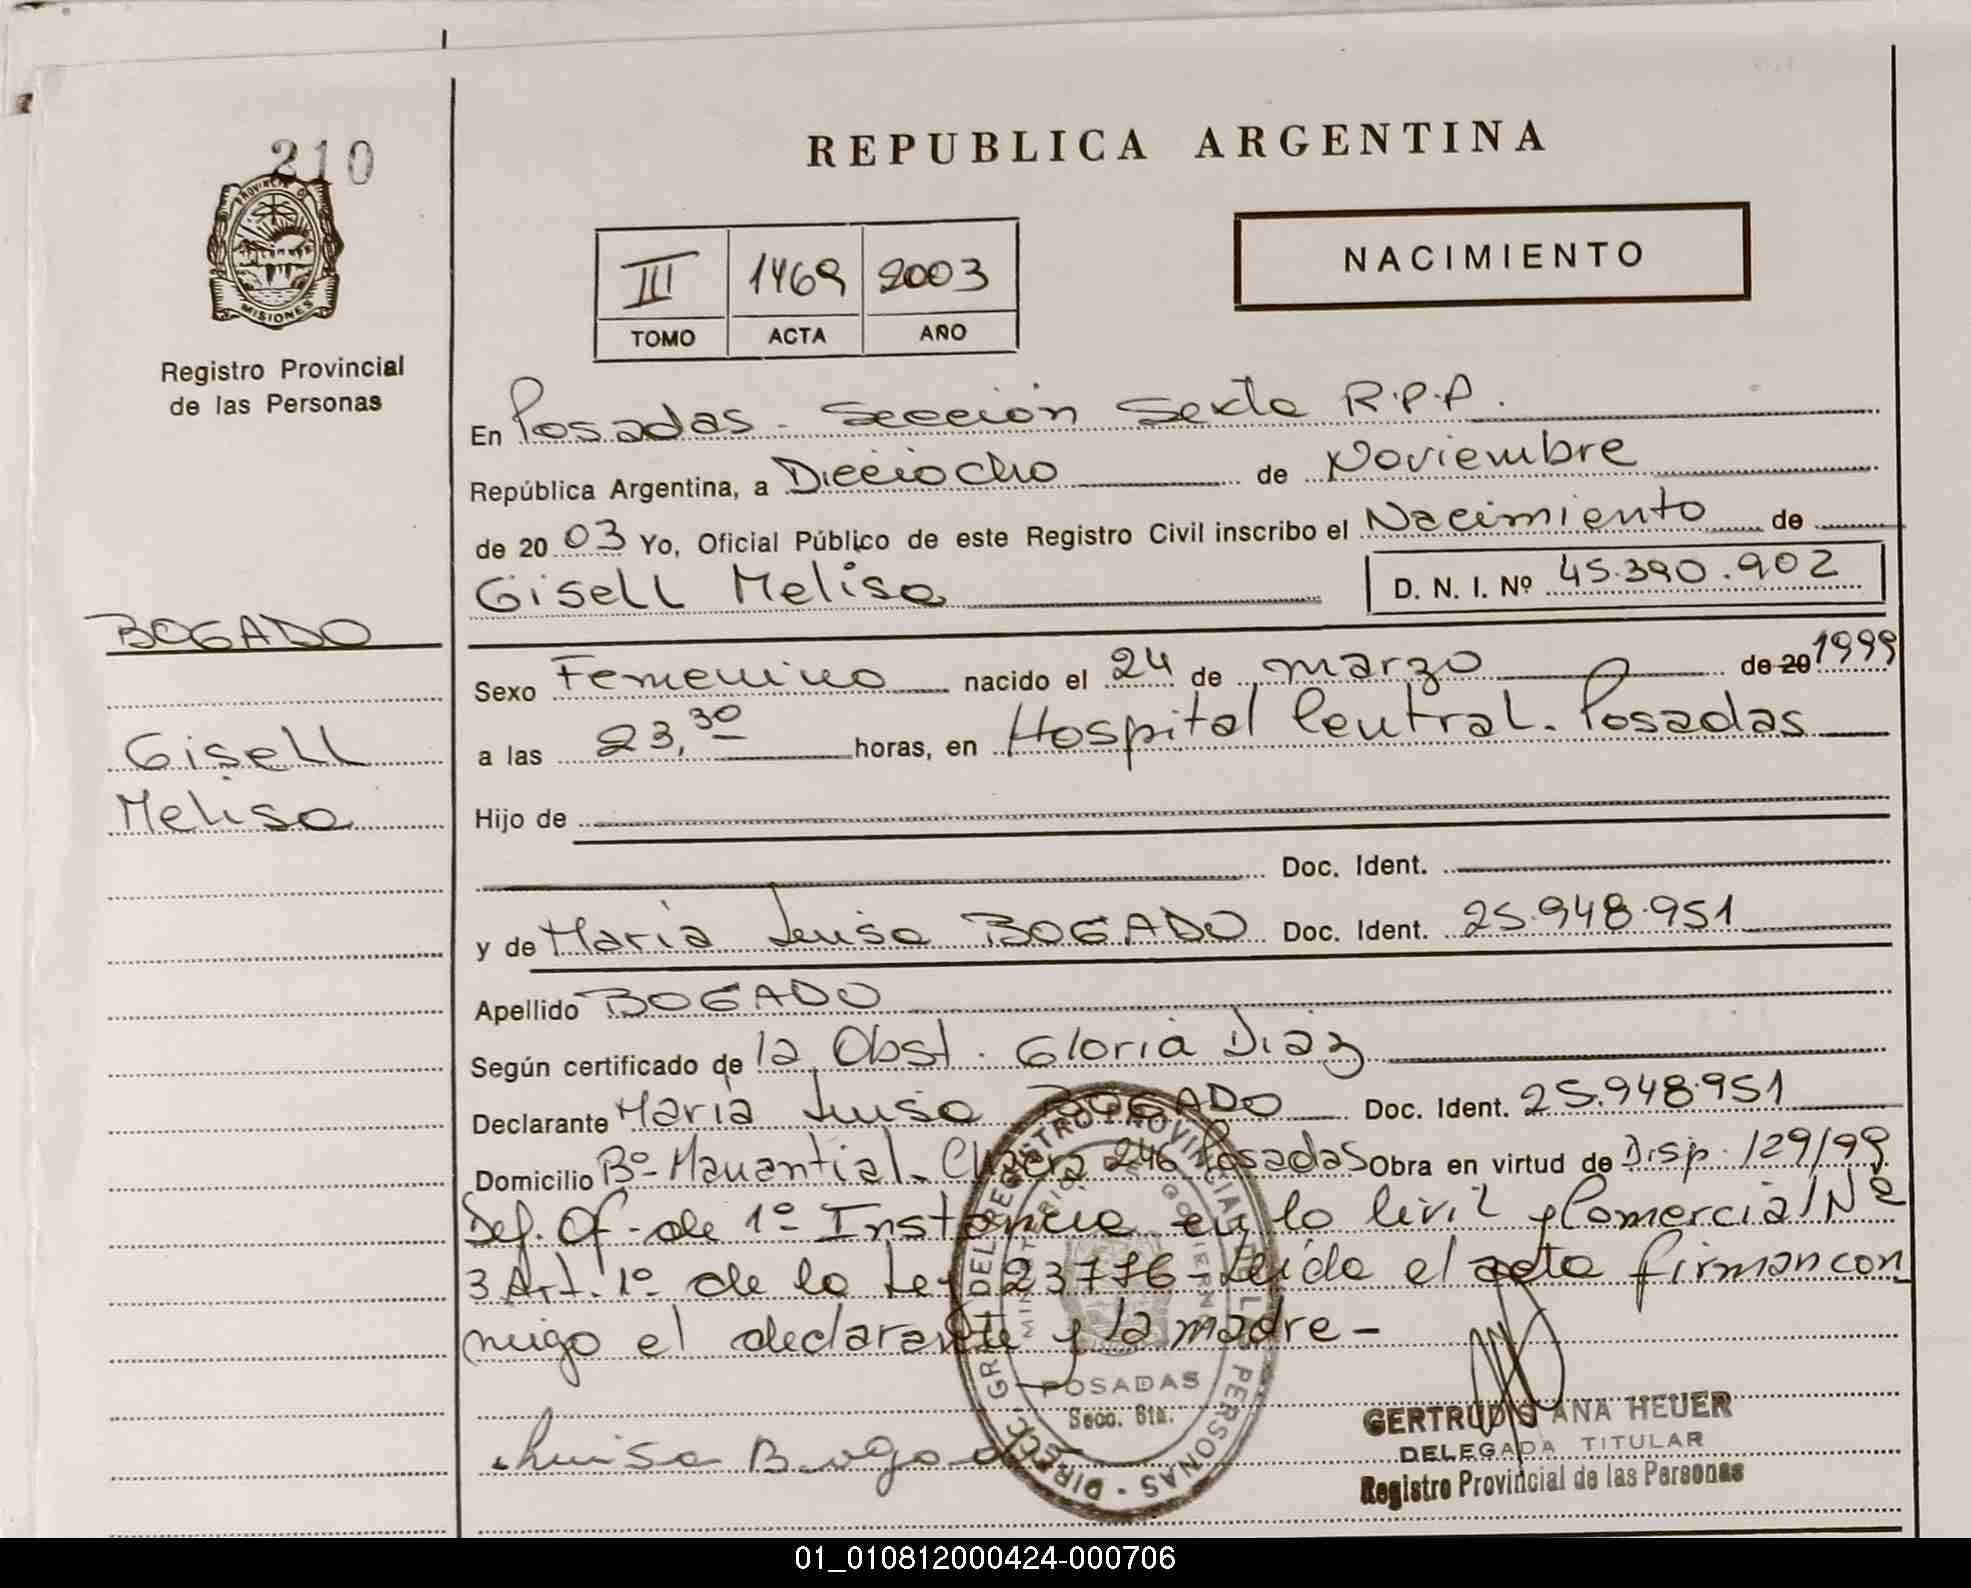 210
PROVINCIA DE
MISIONES
Registro Provincial
de las Personas
REPUBLICA ARGENTINA
III 1469 2003
TOMO ACTA AÑO
NACIMIENTO
En Posadas - Sección Sexta R.P.P.
República Argentina, a Dieciocho de Noviembre
de 2003 Yo, Oficial Público de este Registro Civil inscribo el Nacimiento de
Gisell Melisa D. N. I. Nº 45.390.902
BOGADO
Gisell
Melisa
Sexo Femenino nacido el 24 de marzo de 20 1999
a las 23,30 horas, en Hospital Central - Posadas
Hijo de
Doc. Ident.
y de María Luisa BOGADO Doc. Ident. 25.948.951
Apellido BOGADO
Según certificado de la Obst. Gloria Diaz
Declarante María Luisa BOGADO Doc. Ident. 25.948.951
Domicilio Bº Manantial - Chacra 246 Posadas Obra en virtud de Disp. 129/99
Def. Of. de 1º Instancia en lo Civil y Comercial Nº
3 Art. 1º de la Ley 23776 - Leída el acta firman con
migo el declarante y la madre -
DIRECC. GRAL. DEL REGISTRO PROVINCIAL DE LAS PERSONAS
MINISTERIO DE GOBIERNO
POSADAS
Secc. 6ta.
Luisa Bogado
GERTRUDIS ANA HEUER
DELEGADA TITULAR
Registro Provincial de las Personas
01_010812000424-000706